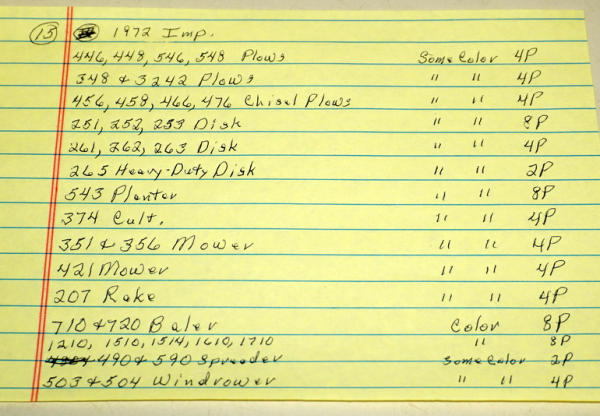 (15) 1972 Imp.
446, 448, 546, 548 Plows Some Color 4P
348 & 3242 Plows " " 4P
456, 458, 466, 476 Chisel Plows " " 4P
251, 252, 253 Disk " " 8P
261, 262, 263 Disk " " 4P
265 Heavy-Duty Disk " " 2P
543 Planter " " 8P
374 Cult. " " 4P
351 & 356 Mower " " 4P
421 Mower " " 4P
207 Rake " " 4P
710 & 720 Baler Color 8P
1210, 1510, 1514, 1610, 1710 " 8P
490 & 590 Spreader Some Color 2P
503 & 504 Windrower " " 4P